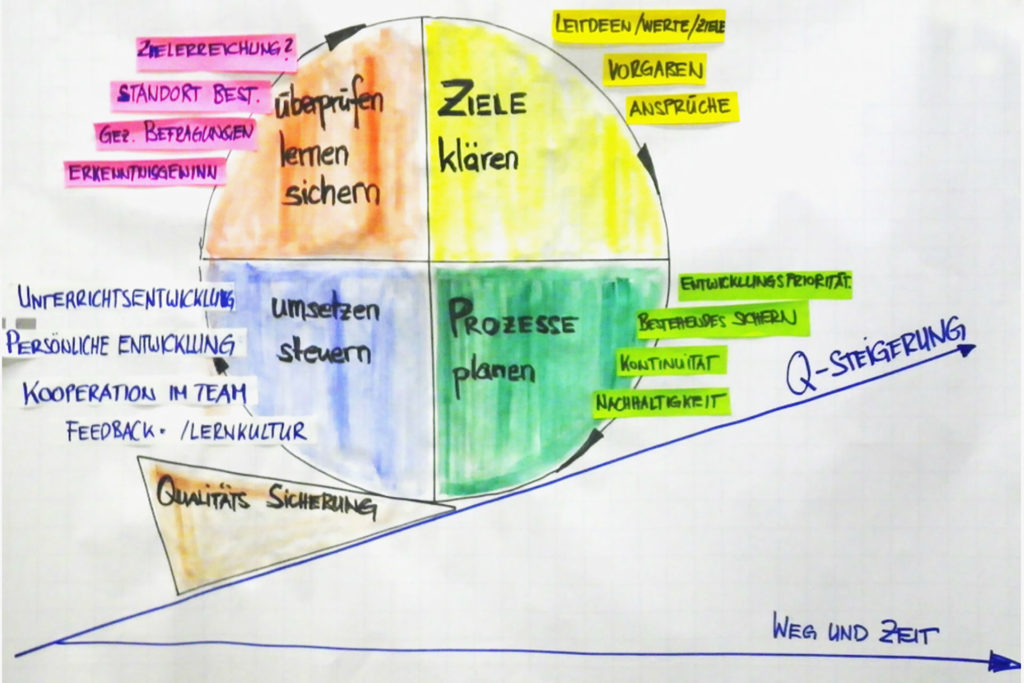 ZIELERREICHUNG?
STANDORT BEST.
GEZ. BEFRAGUNGEN
ERKENNTNISGEWINN
überprüfen
lernen
sichern
ZIELE
klären
LEITIDEEN/WERTE/ZIELE
VORGABEN
ANSPRÜCHE
UNTERRICHTSENTWICKLUNG
PERSÖNLICHE ENTWICKLUNG
KOOPERATION IM TEAM
FEEDBACK- /LERNKULTUR
umsetzen
steuern
PROZESSE
planen
ENTWICKLUNGSPRIORITÄT
BESTEHENDES SICHERN
KONTINUITÄT
NACHHALTIGKEIT
QUALITÄTS SICHERUNG
Q-STEIGERUNG
WEG UND ZEIT